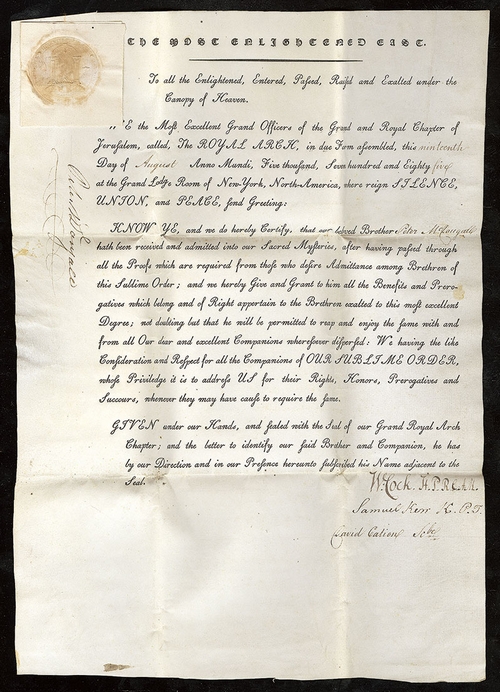 THE MOST ENLIGHTENED EAST.
To all the Enlightened, Entered, Paſſed, Raiſd and Exalted under the
Canopy of Heaven.
WE the Moſt Excellent Grand Officers of the Grand and Royal Chapter of
Jeruſalem, called, The ROYAL ARCH, in due Form aſſembled, this nineteenth
Day of August Anno Mundi, Five thouſand, Seven hundred and Eighty five
at the Grand Lodge Room of New-York, North-America, where reign SILENCE,
UNION, and PEACE, ſend Greeting:
KNOW YE, and we do hereby Certify, that our loved Brother Peter
hath been received and admitted into our Sacred Myſteries, after having paſſed through
all the Proofs which are required from thoſe who deſire Admittance among Brethren of
this Sublime Order; and we hereby Give and Grant to him all the Benefits and Prero-
gatives which belong and of Right appertain to the Brethren exalted to this moſt excellent
Degree; not doubting but that he will be permitted to reap and enjoy the ſame with and
from all Our dear and excellent Companions whereſoever diſperſed: We having the like
Conſideration and Reſpect for all the Companions of OUR SUBLIME ORDER,
whoſe Priviledge it is to addreſs US for their Rights, Honors, Prerogatives and
Succours, whenever they may have cauſe to require the ſame.
GIVEN under our Hands, and ſealed with the Seal of our Grand Royal Arch
Chapter; and the better to identify our ſaid Brother and Companion, he has
by our Direction and in our Preſence hereunto ſubſcribed his Name adjacent to the
Seal.
W. Cock H.P.R.A.A.
Samuel Kerr K. P. T.
David